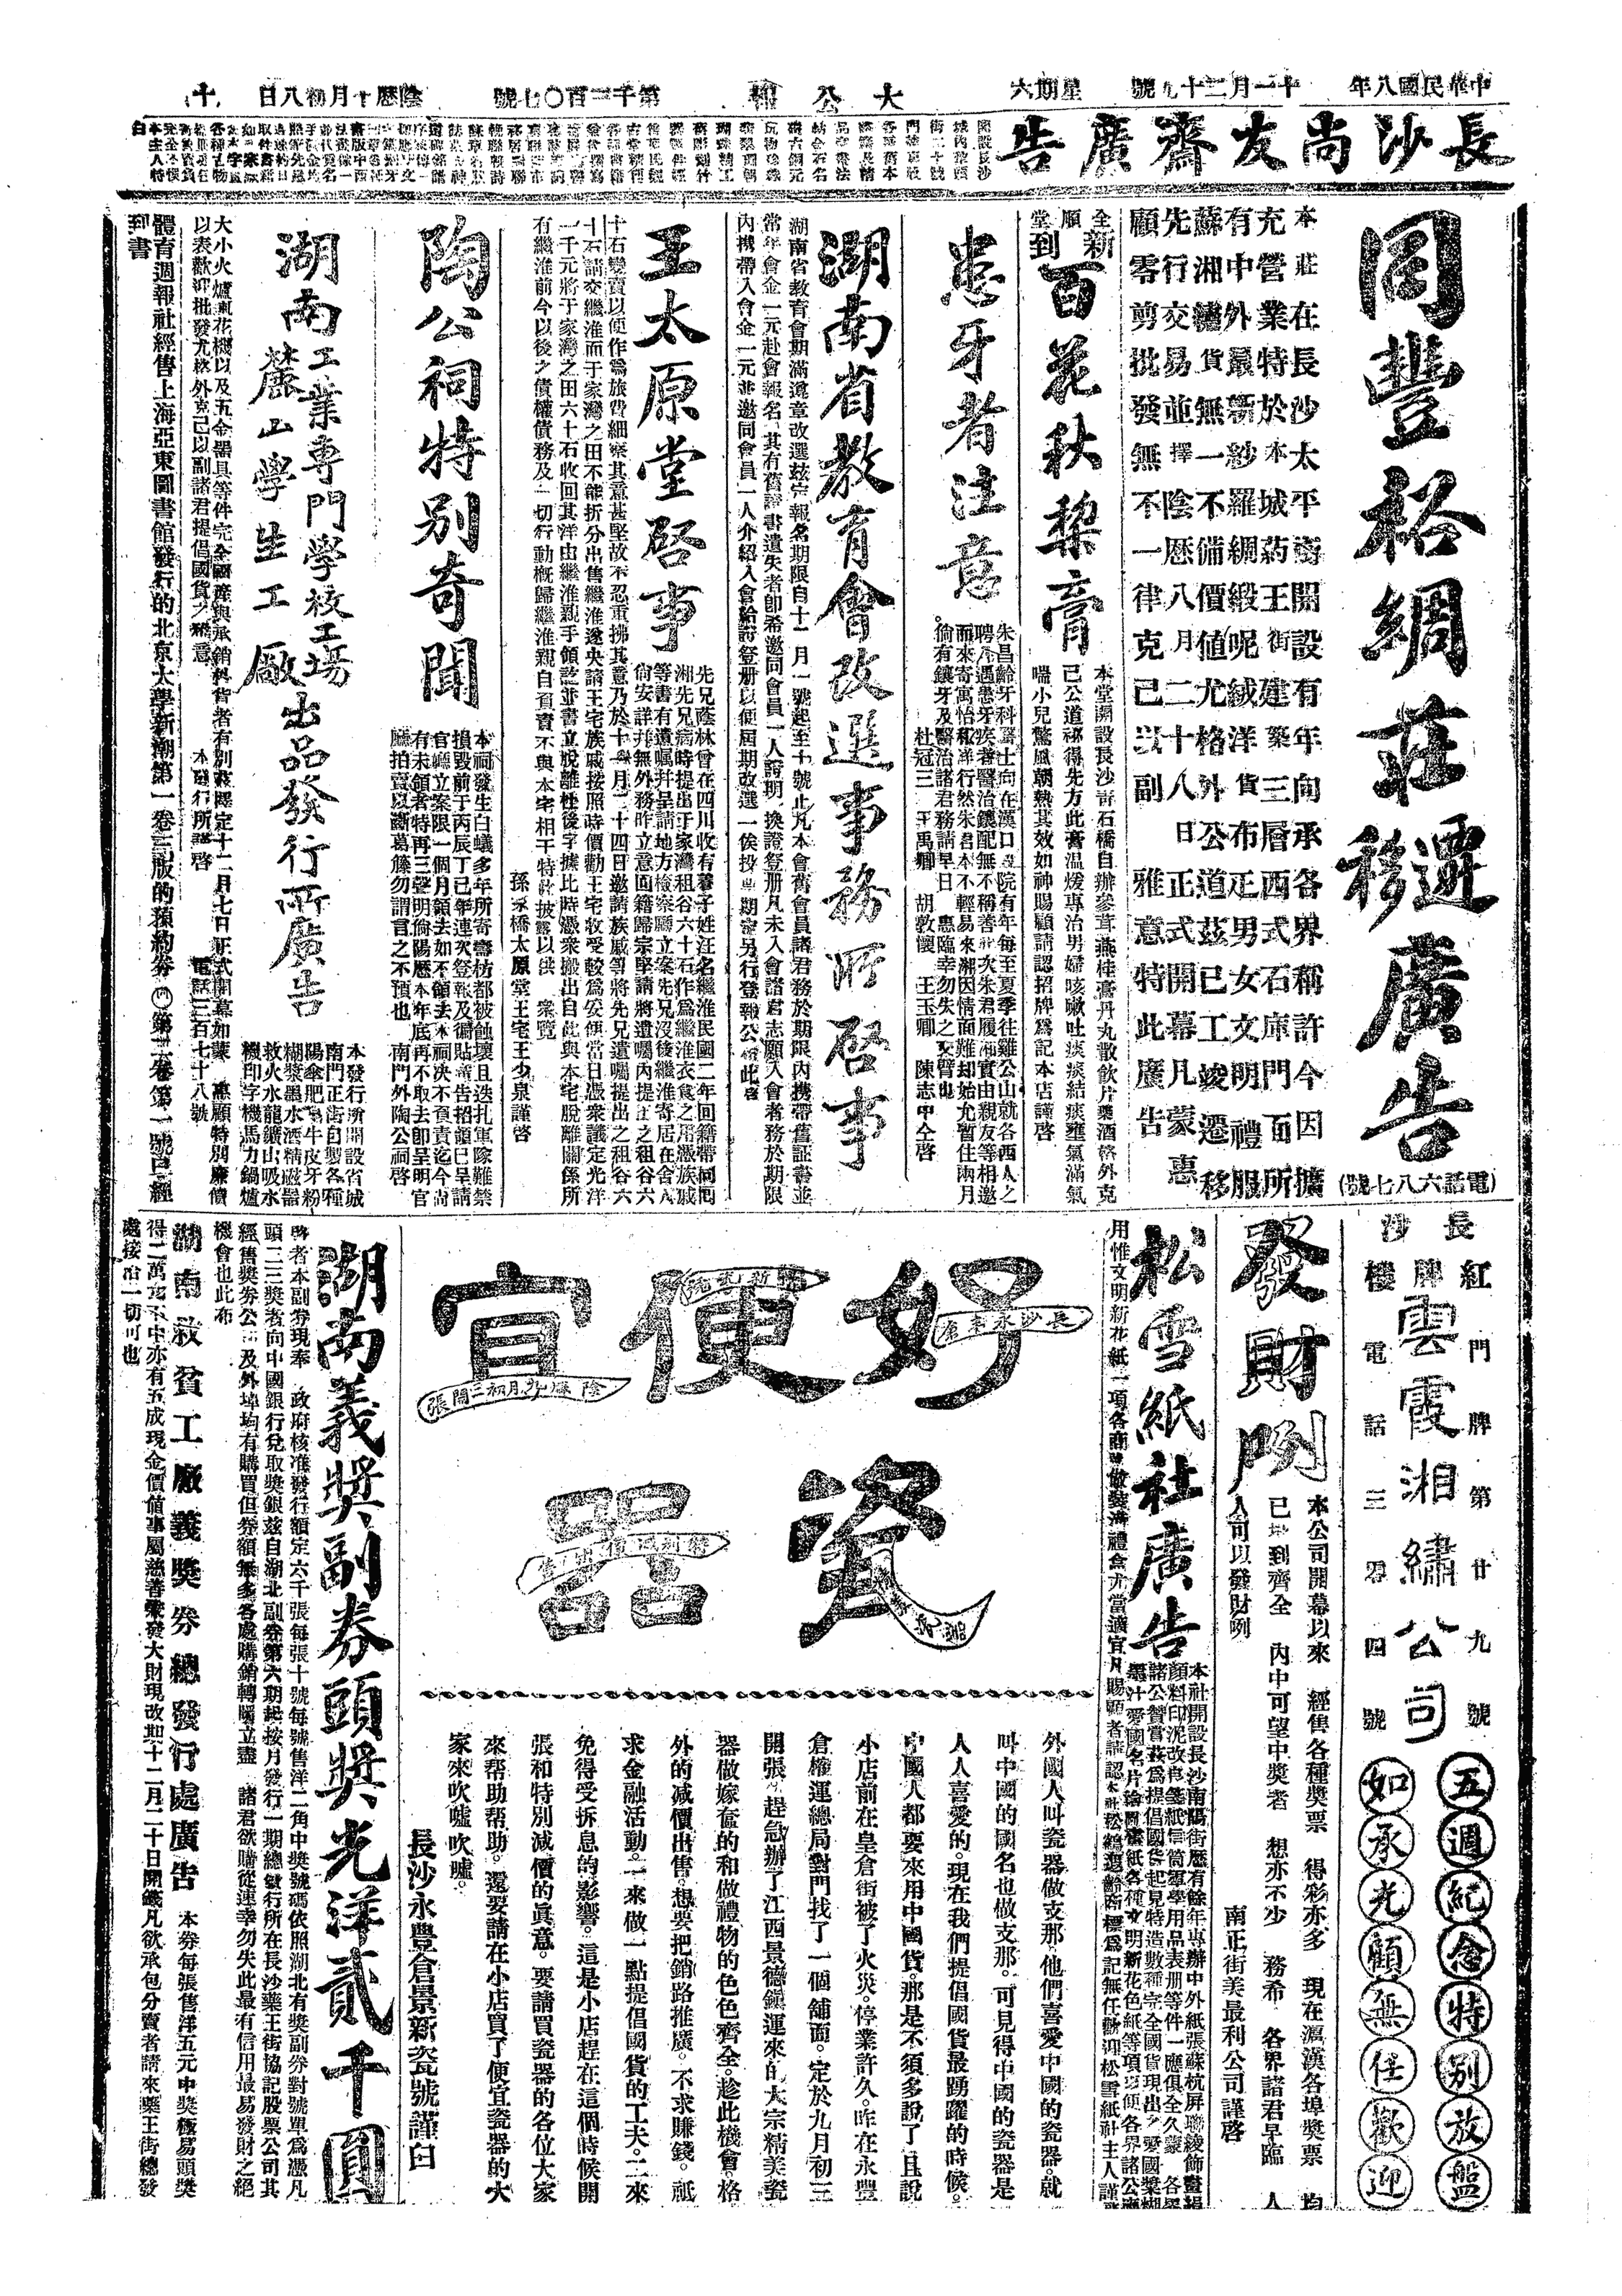 中華民國八年
十一月二十九號
星期六
大公報
第千三百〇七號
陰歷十月初八日
長沙尚友齋廣告
同豐裕綢莊遷移廣告
(電話六八七號)
本莊在長沙太平街開設有年向承各界稱許今因擴
充營業特於本城葯王街建築三層西式石庫門面所
有中外最新紗羅綢緞呢絨洋貨布疋男女文明禮服
蘇湘繡貨無一不備價値尤格外公道茲已工竣遷移
先行交易並擇陰歷八月二十八日正式開幕凡蒙惠
顧零剪批發無不一律克己以副雅意特此廣告
全順堂
新到百花秋梨膏
本堂開設長沙靑石橋自辦參茸燕桂膏丹丸散飮片藥酒格外克
己公道祕得先方此膏温煖專治男婦咳嗽吐痰痰結痰壅氣滿氣
喘小兒驚風朝熱其效如神賜顧請認招牌爲記本店謹啓
患牙者注意
朱昌齡牙科醫士向在漢口設院有年每至夏季往雞公山就各西人之
聘凡遇患牙疾者醫治鑲配無不稱善此次朱君履湘實由親友等相邀
而來寄寓怡和洋行然朱君本不輕易來湘因情面難却始允暫住兩月
倘有鑲牙及醫治諸君務請早日惠臨幸勿失之交臂也
杜冠三 王禹卿 胡敦懷 王玉卿 陳志中仝啓
湖南省教育會改選事務所啓事
湖南省教育會期滿遵章改選茲定報名期限自十二月一號起至十號止凡本會舊會員諸君務於期限內携帶舊証書並
常年會金一元赴會報名其有舊證書遺失者卽希邀同會員一人證明換證登册凡未入會諸君志願入會者務於期限
內携帶入會金一元並邀同會員一人介紹入會給證登册以便屆期改選一俟投票期定另行登報公佈此啓
王太原堂啓事
先兄蔭林曾在四川收有養子姓汪名繼淮民國二年回籍帶同同
湘先兄病時提出于家灣租谷六十石作爲繼淮衣食之用憑族戚
等書有遺囑并呈請地方檢察廳立案先兄沒後繼淮寄居在舍人
倘安詳幷無外務昨立意回籍歸宗堅請將遺囑內提出之租谷六
十石變賣以便作爲旅費細察其意甚堅故不忍重拂其意乃於十一月二十四日邀請族戚等將先兄遺囑提出之租谷六
十石請交繼淮而于家灣之田不能折分出售繼淮遂央請王宅族戚接照時價勸王宅收受較爲妥便當日憑衆議定光洋
一千元將于家灣之田六十石收回其洋由繼淮親手領訖並書立脫離杜後字據比時憑衆搬出自此與本宅脫離關係所
有繼淮前今以後之債權債務及一切行動概歸繼淮親自負責不與本宅相干特此披露以供衆覽
孫家橋太原堂王宅王少泉謹啓
陶公祠特別奇聞
本祠發生白蟻多年所寄壽枋都被蝕壞且迭扎軍隊難禁
損毀前于丙辰丁巳年連次登報及徧貼廣告招領已呈請
官廳立案限一個月領去如不領去本祠决不負責迄今尚
有未領者特再三聲明倘陽歷本年底再不取去卽呈明官
廳拍賣以斷葛籐勿謂言之不預也
南門外陶公祠啓
湖南工業專門學校工場
麓山學生工廠
出品發行所廣告
本發行所開設省城
南門正街自製各種
陽傘肥皂牛皮牙粉
糊漿墨水酒精磁器
救火水龍鑛山吸水
機印字機馬力鍋爐
大小火爐軋花機以及五金器具等件完全國産與承銷料貨者有別茲擇定十二月七日正式開幕如蒙惠顧特別廉價
以表歡迎批發尤格外克己以副諸君提倡國貨之雅意
本發行所謹啓
電話三百七十八號
體育週報社經售上海亞東圖書館發行的北京大學新潮第一卷三版的預約券
第二卷第一號已經到書
長沙
紅牌樓雲霞湘繡公司
門牌第廿九號
電話三零四號
五週紀念特別放盤
如承光顧無任歡迎
發財咧
本公司開幕以來 經售各種獎票 得彩亦多 現在滬漢各埠獎票 均
已運到齊全 內中可望中獎者 想亦不少 務希 各界諸君早臨 人
人可以發財咧
南正街美最利公司謹啓
松雪紙社廣告
本社開設長沙南陽街歷有餘年專辦中外紙張蘇杭屛聯綾飾畫絹
顏料印泥改良箋紙信筒軍學用品表册等件一應俱全久蒙各界
諸公贊賞茲爲提倡國貨起見特造數種完全國貨現出之愛國漿糊
墨汁愛國名片繪圖畫紙各種文明新花色紙等項以便各界諸公應
用惟文明新花紙一項各商號做裝潢禮盒亦當適宜凡賜顧者請認本社松鶴遐齡商標爲記無任歡迎松雪紙社主人謹啓
好便宜
瓷器
長沙永豐倉
陰歷九月初三開張
外國人叫瓷器做支那。他們喜愛中國的瓷器。就
叫中國的國名也做支那。可見得中國的瓷器是
人人喜愛的。現在我們提倡國貨最踴躍的時候。
中國人都要來用中國貨。那是不須多說了。且說
小店前在皇倉街被了火災。停業許久。昨在永豐
倉榷運總局對門找了一個舖面。定於九月初三
開張。趕急辦了江西景德鎭運來的大宗精美瓷
器做嫁奩的和做禮物的色色齊全。趁此機會。格
外的减價出售。想要把銷路推廣。不求賺錢。祇
求金融活動。一來做一點提倡國貨的工夫。二來
免得受拆息的影響。這是小店趕在這個時候開
張和特別減價的眞意。要請買瓷器的各位大家
來帮助帮助。還要請在小店買了便宜瓷器的大
家來吹噓吹噓。
長沙永豐倉景新瓷號謹白
湖南義獎副券頭獎光洋貳千圓
啓者本副券現奉 政府核准發行額定六千張每張十號每號售洋二角中獎號碼依照湖北有獎副券對號單爲憑凡
頭二三獎者向中國銀行兌取獎銀茲自湖北副券第六期起按月發行一期總發行所在長沙藥王街協記股票公司其
經售獎券公司及外埠均有購買但券額無多各處購銷轉瞬立盡 諸君欲購從速幸勿失此最有信用最易發財之絕
機會也此布
湖南救貧工廠義獎券總發行處廣告
本券每張售洋五元中獎極易頭獎
得二萬元不中亦有五成現金價値事屬慈善榮發大財現改期十二月二十日開籤凡欲承包分賣者請來藥王街總發
處接洽一切可也